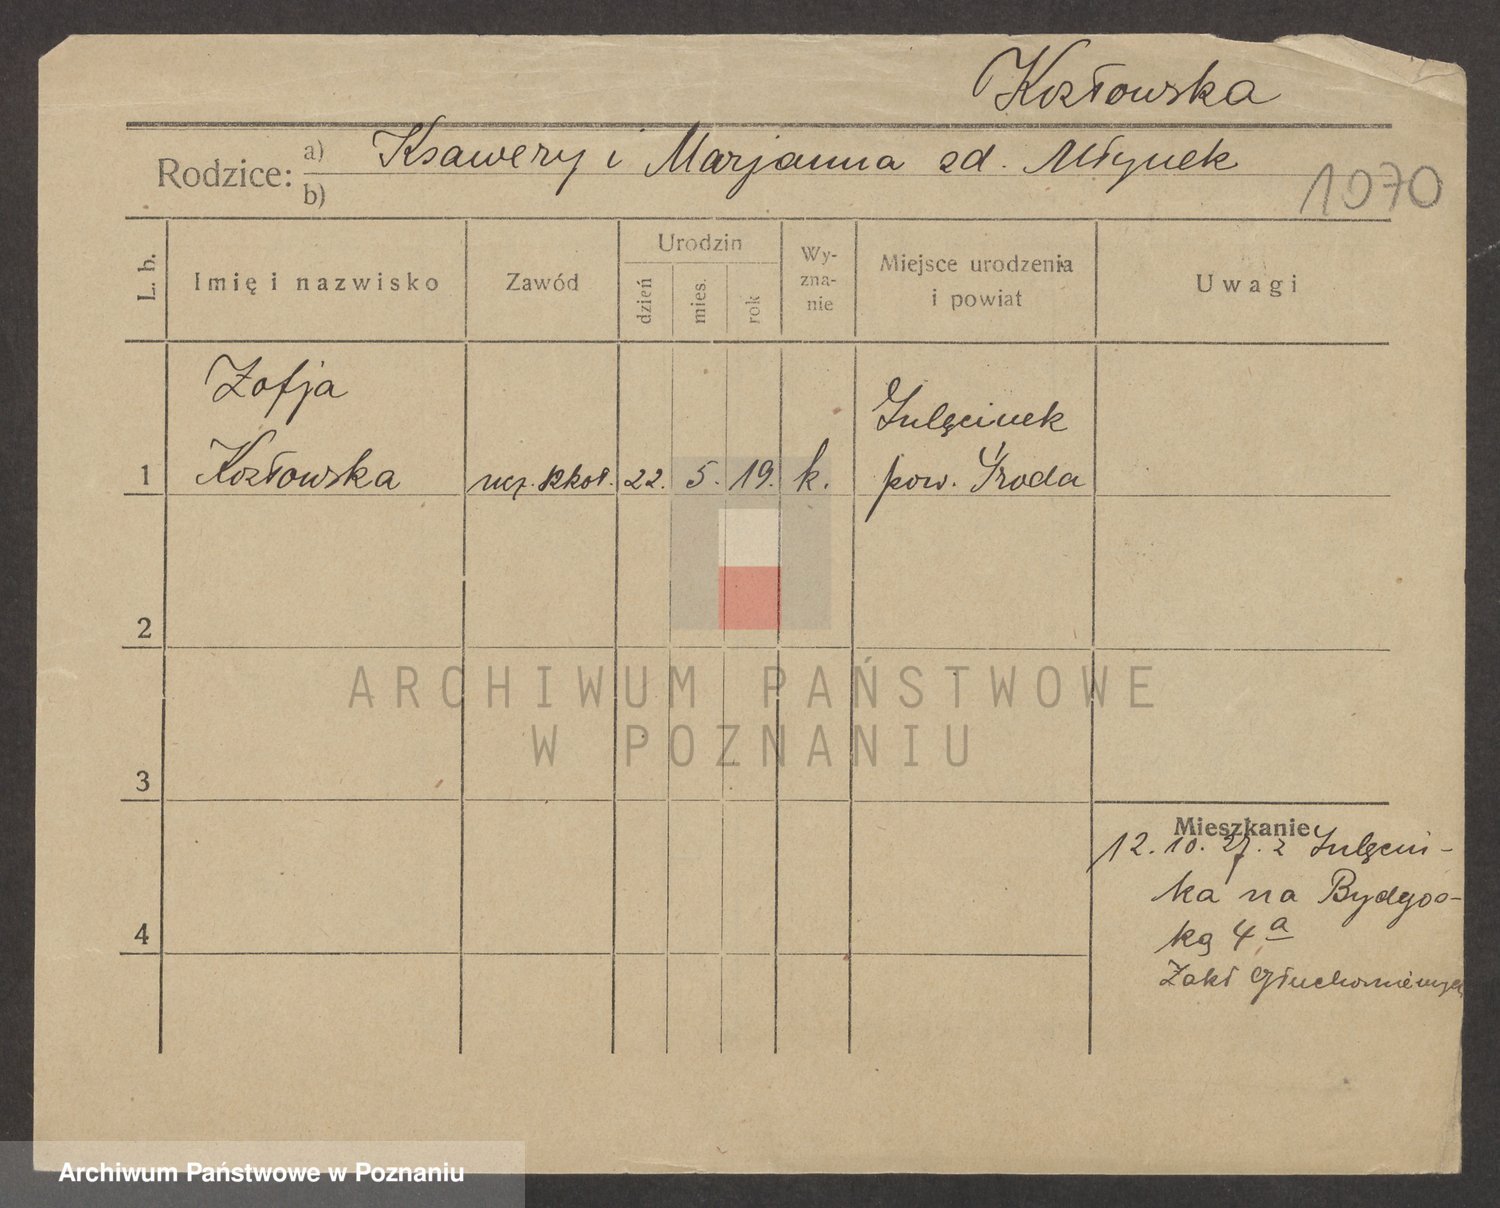 Kozłowska
Rodzice: a) Ksawery i Marjanna zd. Młynek
b)
1070
L. b.
Imię i nazwisko
Zawód
Urodzin
dzień
mies.
rok
Wy-
zna-
nie
Miejsce urodzenia
i powiat
Uwagi
Zofja
1 Kozłowska ucz. szkoł. 22. 5. 19. k.
Sulęcinek
pow. Środa
2
3
4
Mieszkanie
12. 10. 27. z Sulęcin-
ka na Bydgos-
ką 4a
Zakł Głuchoniemych
ARCHIWUM PAŃSTWOWE
W POZNANIU
Archiwum Państwowe w Poznaniu